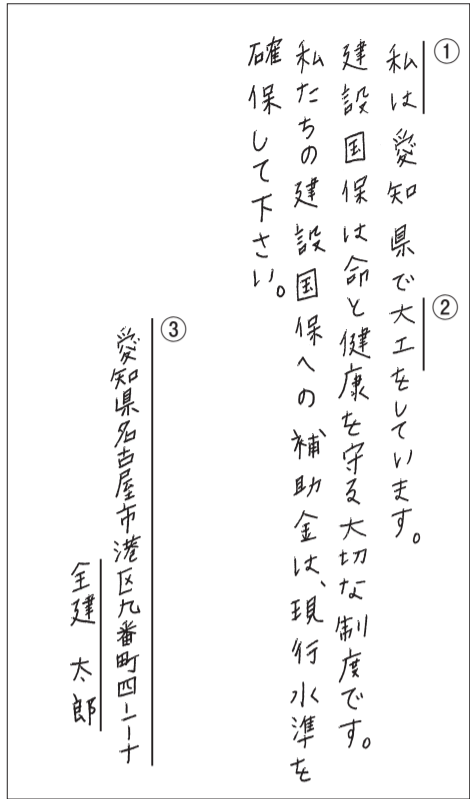 ①
私は愛知県で大工をしています。
②
建設国保は命と健康を守る大切な制度です。
私たちの建設国保への補助金は、現行水準を
確保して下さい。
③
愛知県名古屋市港区九番町四ー二ー十
全建 太郎